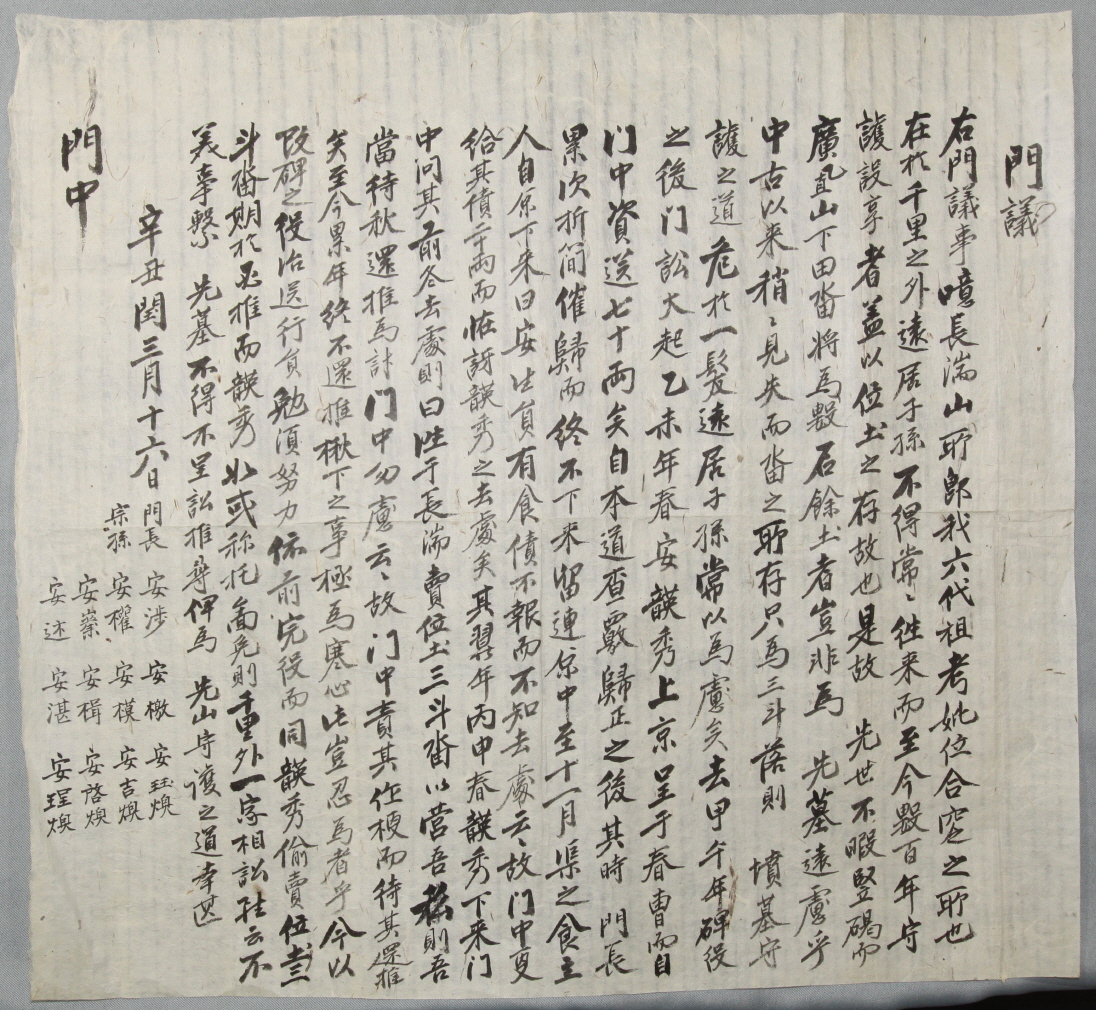 門議
右門議事噫長湍山耶郎我六代祖考妣位合窆之耶也
在於千里之外遠居子孫不得常〻徃来而至今數百年守
護設享者盖以位土之存故也是故 先世不暇竪碣而
廣置山下田畓將為數石餘土者豈非為 先墓遠慮乎
中古以来稍〻見失而畓之耶存只為三斗落則 墳墓守
護之道危於一髮遠居子孫常以為慮矣去甲午年碑役
之後门訟大起乙未年春安韺秀上京呈于春曹而自
门中資送七十兩矣自本道查覈歸正之後其時 門長
累次折簡催歸而終不下来留連京中至十一月渠之食主
人自京下来曰安生員有食債不報而不知去處云〻故门中更
給其債二十兩而恠訝韺秀之去處矣其翌年丙申春韺秀下来门
中问其前冬去處則曰徃于長湍賣位土三斗畓以營吾私則吾
當待秋還推為計门中勿慮云〻故门中責其作梗而待其還推
矣至今累年終不還推楸下之事極為寒心此豈忍為者乎今以
改碑之役治送行員勉須努力依前完役而同韺秀偷賣位土三
斗畓期於必推而韺秀如或称托啚免則千里外一家相訟雖云不
美事繫 先墓不得不呈訟推尋俾為 先山守護之道幸甚
辛丑閏三月十六日 門長 安渉 安檄 安珏煥
宗孫 安櫂 安模 安吉煥
安巢 安楫 安啓煥
安述 安湛 安珵煥
門中